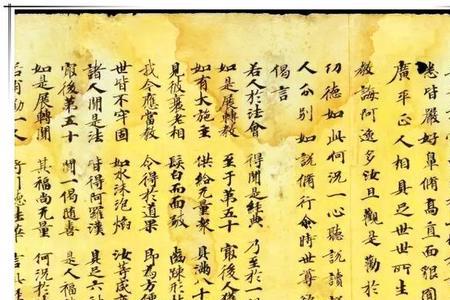 悉皆嚴好鼻脩高直面貌圓
廣平正人相具足世世所生
教誨阿逸多汝且觀是勸於
功德如此何況一心聽說讀
人分別如說脩行尒時世尊欲
偈言
若人於法會 得聞是經典 乃至於一
如是展轉教 至于第五十 㝡後人獲
如有大施主 供給无量眾 具滿八十
見彼衰老相 髮白而面皺 齒疎形枯
我今應當教 令得於道果 即為方便
世皆不牢固 如水沫泡焰 汝等咸
諸人聞是法 皆得阿羅漢 具足六
㝡後第五十 聞一偈隨喜 是人福
如是展轉聞 其福尚无量 何況於
若有勸一人